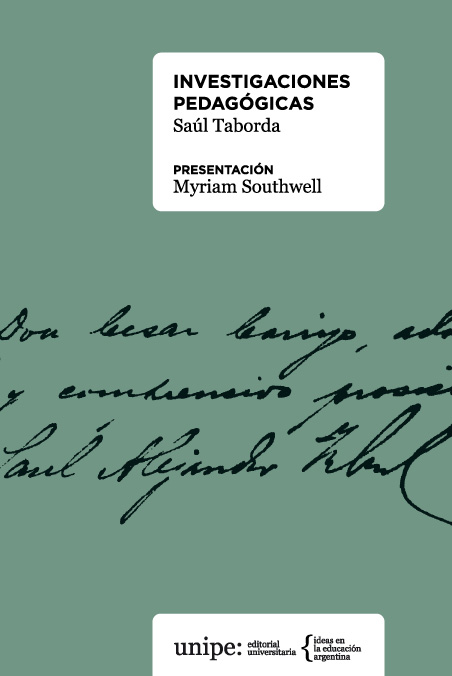 INVESTIGACIONES
PEDAGÓGICAS
Saúl Taborda
PRESENTACIÓN
Myriam Southwell
Don Cesar Carrizo,
y comprensivo
Saúl Alejandro Taborda
unipe: editorial universitaria { ideas en la educación argentina